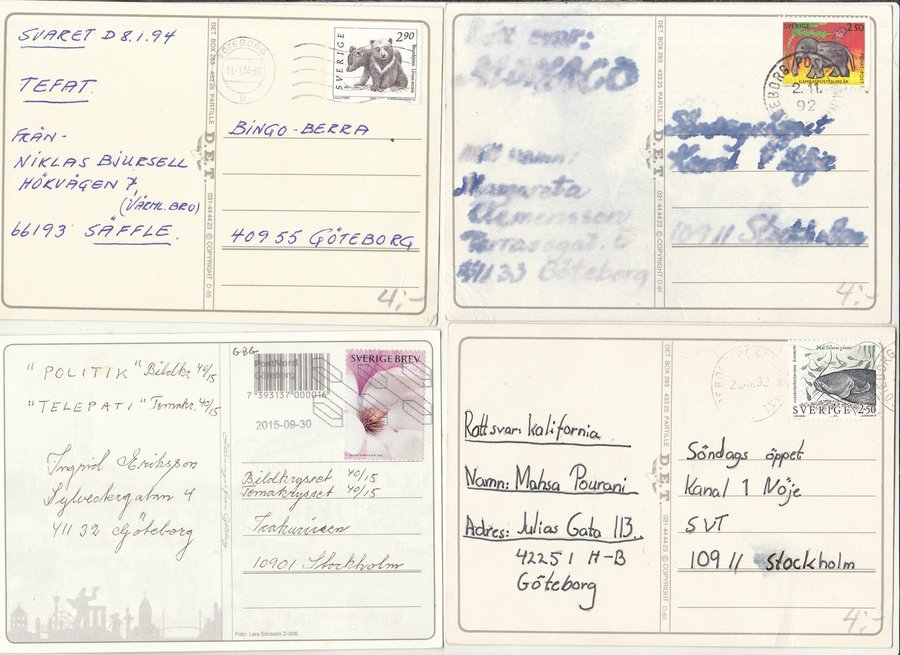 SVARET D 8.1.94
TEFAT.
FRÅN-
NIKLAS BJURSELL
HÖKVÄGEN 7,
(VÄRML.BRO)
66193 SÄFFLE.
DET BOX 263 433 25 PARTILLE D.E.T. 031-44 44 23 © COPYRIGHT D-55
GÖTEBORG
SVERIGE 2.90
BINGO-BERRA
409 55 GÖTEBORG
4:-
Mitt namn:
Margareta
Clemensson
Terrassgat.
411 33 Göteborg
DET BOX 263 433 25 PARTILLE D.E.T. 031-44 44 23 © COPYRIGHT D-91
SVERIGE 2 50
GÖTEBORG
2. 11.
92
Söndagsöppet
Kanal 1 Nöje
109 11 Stockholm
4:-
"POLITIK" Bildkr. 40/15
"TELEPATI" Temakr. 40/15
Ingrid Eriksson
Sylvestergatan 4
411 32 Göteborg
GBG
PostNord
Göteborg
7 393137 000016
2015-09-30
SVERIGE BREV
Bildkrysset 40/15
Temakrysset 40/15
10901 Stockholm
Foto: Lars Ericsson D-206
Rattsvar: Kalifornia
Namn: Mahsa Pourani
Adress: Julias Gata 113.
42251 H-B
Göteborg
DET BOX 263 433 25 PARTILLE D.E.T. 031-44 44 23 © COPYRIGHT D-60
Mal Silurus glanis
SVERIGE 2.50
Söndags öppet
Kanal 1 Nöje
SVT
109 11 Stockholm
4:-